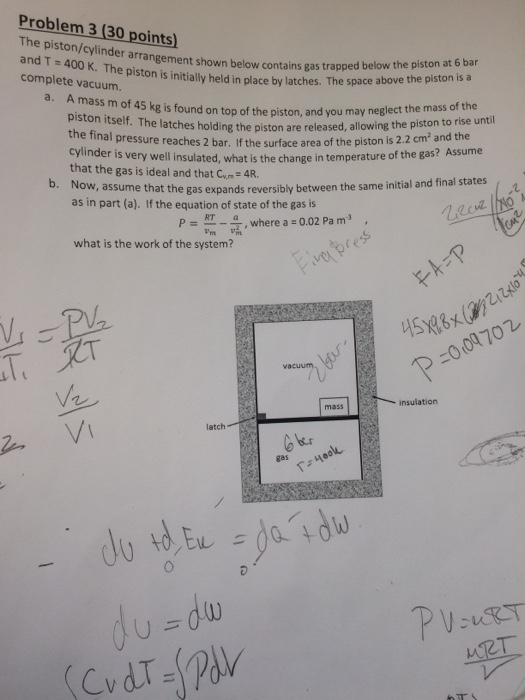 Problem 3 (30 points)
The piston/cylinder arrangement shown below contains gas trapped below the piston at 6 bar
and T = 400 K. The piston is initially held in place by latches. The space above the piston is a
complete vacuum.
a. A mass m of 45 kg is found on top of the piston, and you may neglect the mass of the
piston itself. The latches holding the piston are released, allowing the piston to rise until
the final pressure reaches 2 bar. If the surface area of the piston is 2.2 cm² and the
cylinder is very well insulated, what is the change in temperature of the gas? Assume
that the gas is ideal and that Cv,m = 4R.
b. Now, assume that the gas expands reversibly between the same initial and final states
as in part (a). If the equation of state of the gas is
P = RT/vm - a/vm², where a = 0.02 Pa m³
what is the work of the system?
Final press
FA=P
45x9.8x
P=0.09702
= PV2
RT
V2
V1
vacuum
2 bar
mass
insulation
latch
6 bar
gas
T=400k
du + dEk = dQ + dw
0
0
du = dw
∫CvdT = ∫Pdv
PV=nRT
nRT
V